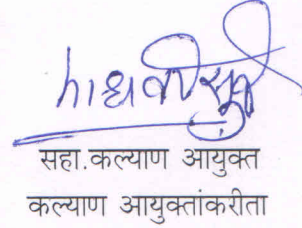 सहा.कल्याण आयुक्त
कल्याण आयुक्तांकरीता